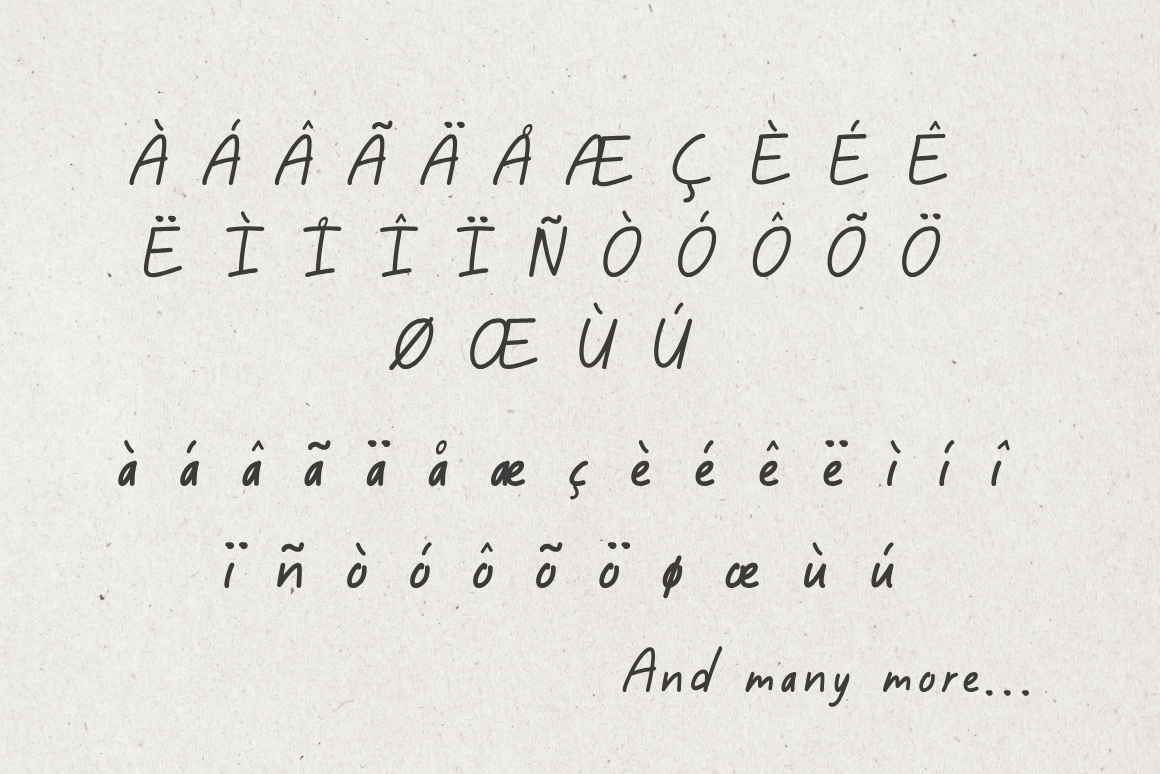 À Á Â Ã Ä Å Æ Ç È É Ê
Ë Ì I̊ Î Ï Ñ Ò Ó Ô Õ Ö
Ø Œ Ù Ú
à á â ã ä å æ ç è é ê ë ì í î
ï ñ ò ó ô õ ö ø œ ù ú
And many more...